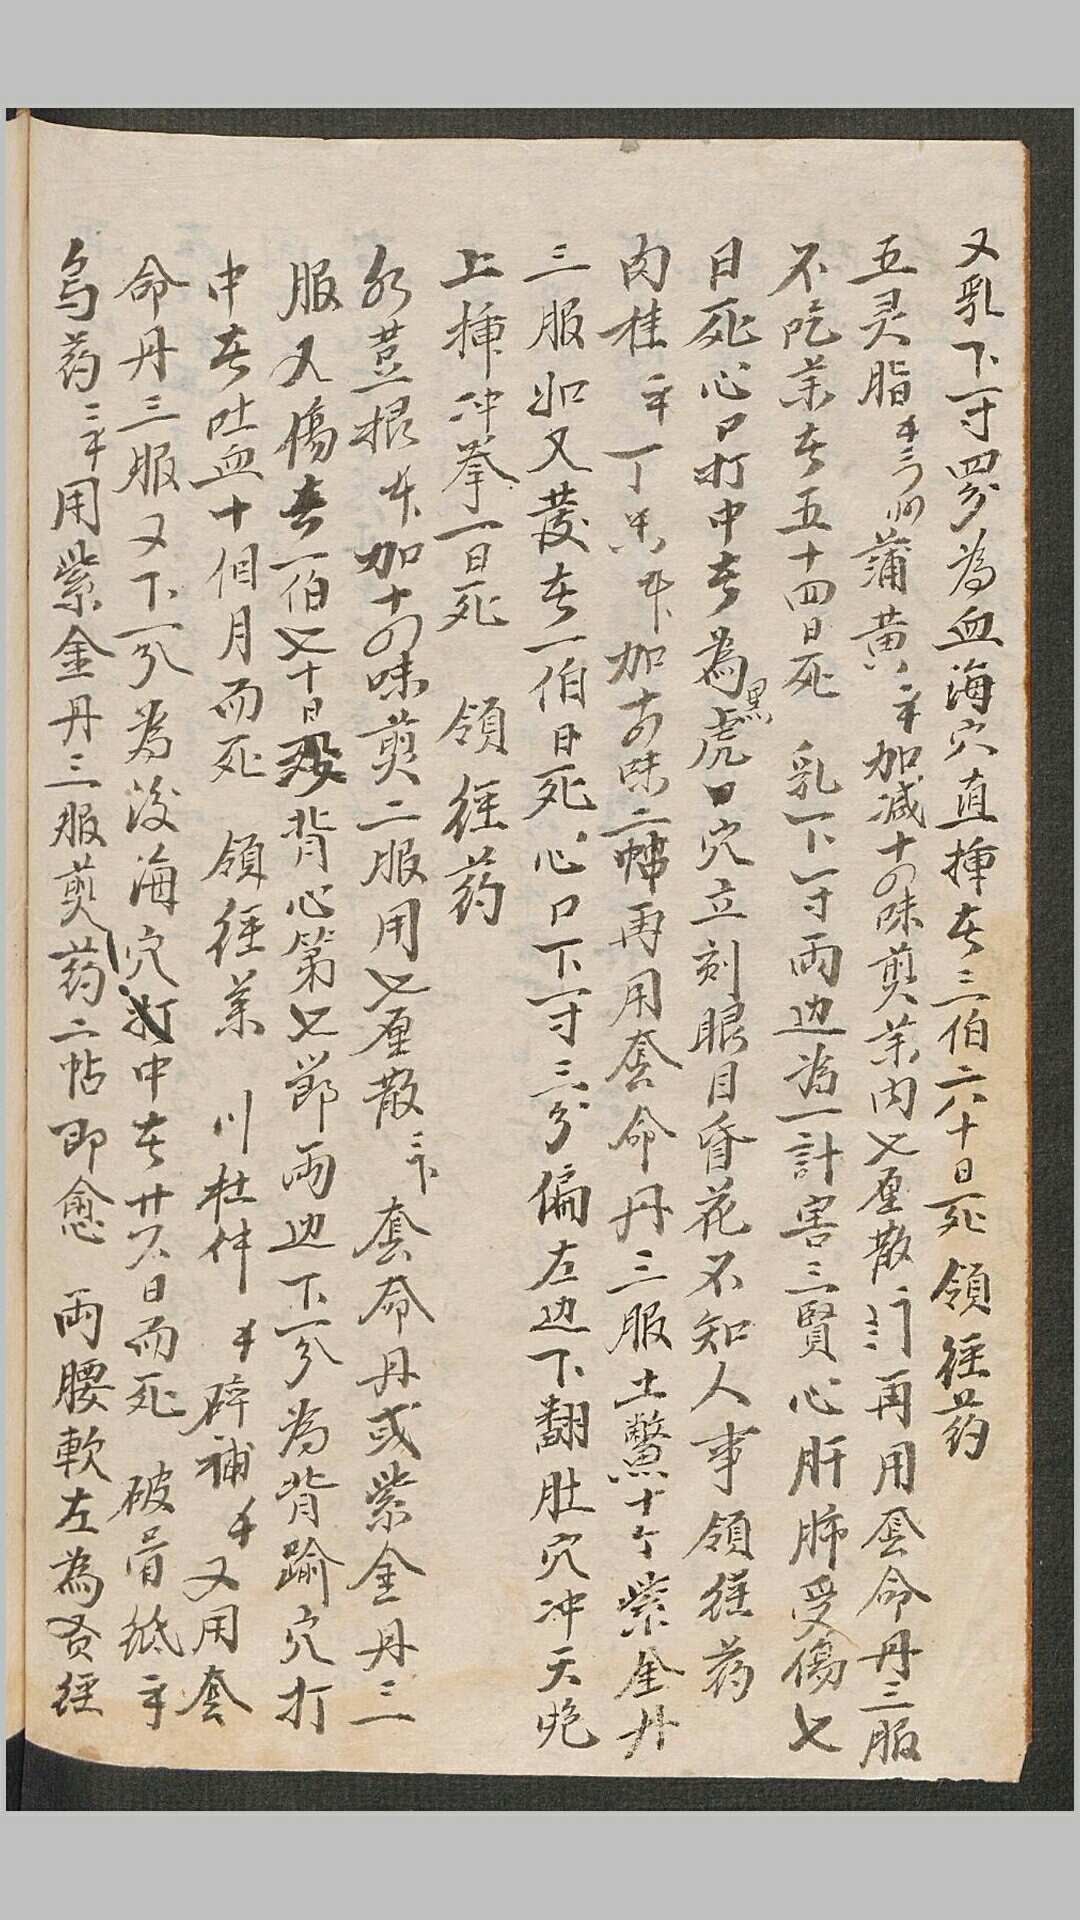 又乳下一寸四分為血海穴直揷者三伯六十日死領徑药
五灵脂 蒲黄 加減十四味煎茶内七厘散 再用套命丹三服
不吃茶者五十四日死 乳下一寸両边為一計害三賢心肝肺受傷七
日死心口打中者為黑虎口穴立刻眼目昏花不知人事領徑药
肉桂 丁 加 味二帖再用套命丹三服土鱉十个紫金丹
三服如又發者一伯日死心口下一寸三分偏左边下翻肚穴冲天炮
上揷冲拳一日死 領徑药
根 加十四味煎二服用七厘散 套命丹或紫金丹三
服又傷者一伯七十日 背心第七節両边下一分為背踰穴打
中者吐血十個月而死 領徑茶 川杜仲 碎補 又用套
命丹三服又下一分為後海穴打中者廿 日而死 破骨
乌药 用紫金丹三服煎药二帖即愈 両腰軟左為 徑